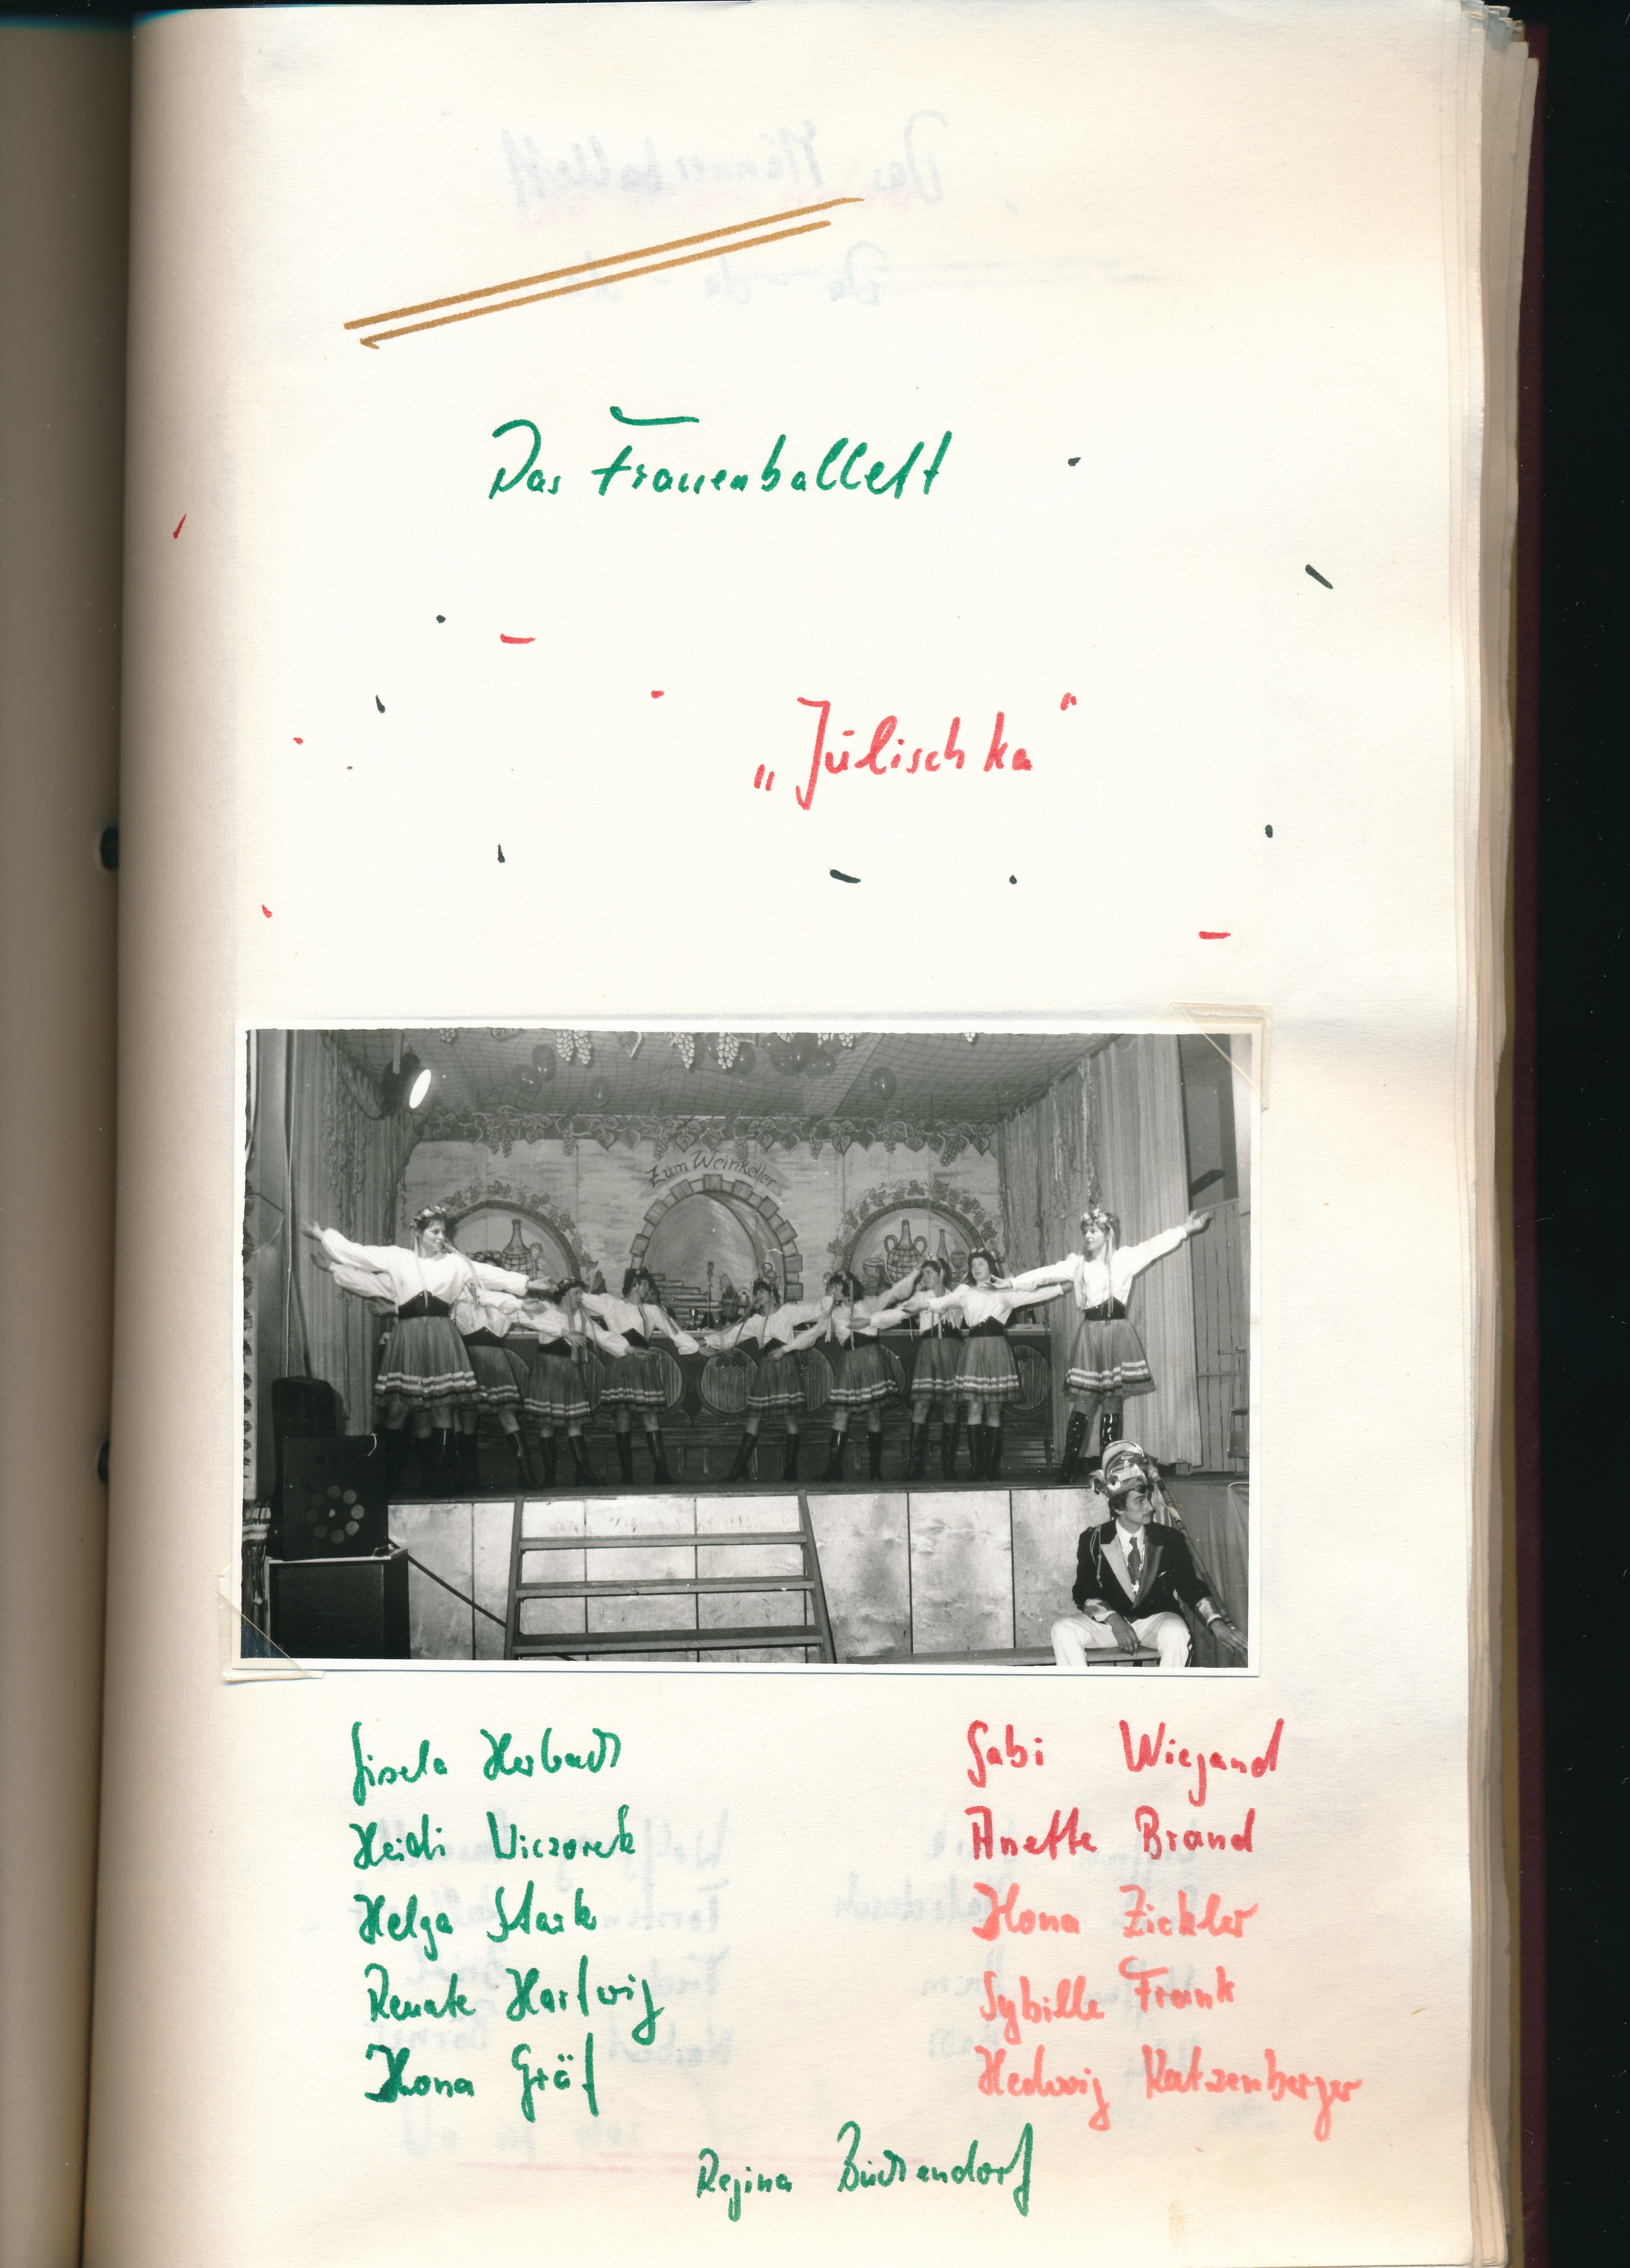 Das Frauenballett
„Julischka“
Zum Weinkeller
Gisela Herbach
Gabi Wiegand
Heidi Wiczorek
Anette Brand
Helga Stark
Ilona Zickler
Renate Hartwig
Sybille Frank
Ilona Gräf
Hedwig Katzenberger
Regina Buchendorf